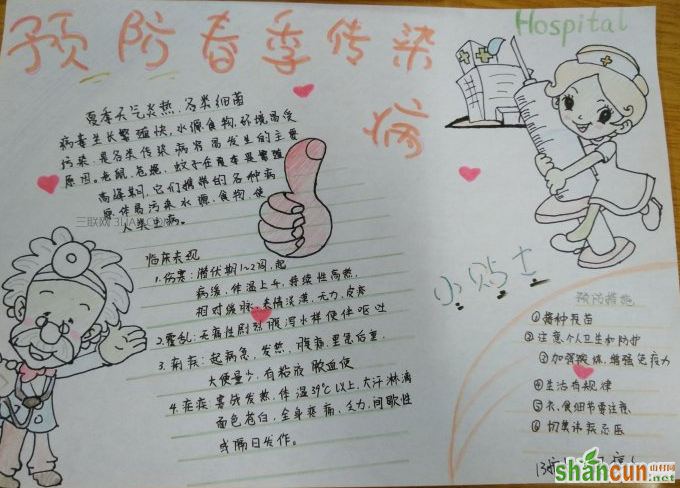 预防春季传染病
Hospital
夏季天气炎热,各类细菌
病毒生长繁殖快,水源食物,环境易受
污染,是各类传染病容易发生的主要
原因。老鼠,苍蝇,蚊子在夏季是繁殖
高峰期,它们携带的各种病
原体易污染水源,食物,使
人类患病。
三联网
临床表现
1.伤寒:潜伏期1~2周,起
病缓,体温上升,持续性高热,
相对缓脉,表情淡漠,无力,皮疹
2.霍乱:无痛性剧烈腹泻水样便伴呕吐
3.痢疾:起病急,发热,腹痛,里急后重,
大便量少,有粘液脓血便
4.疟疾:寒战发热,体温39℃以上,大汗淋漓
面色苍白,全身疼痛,乏力,间歇性
或隔日发作。
小贴士
预防措施
①接种疫苗
②注意个人卫生和防护
③加强锻炼,增强免疫力
④生活有规律
⑤衣,食细节要注意
⑥切莫讳疾忌医
shancun
山村网
.net